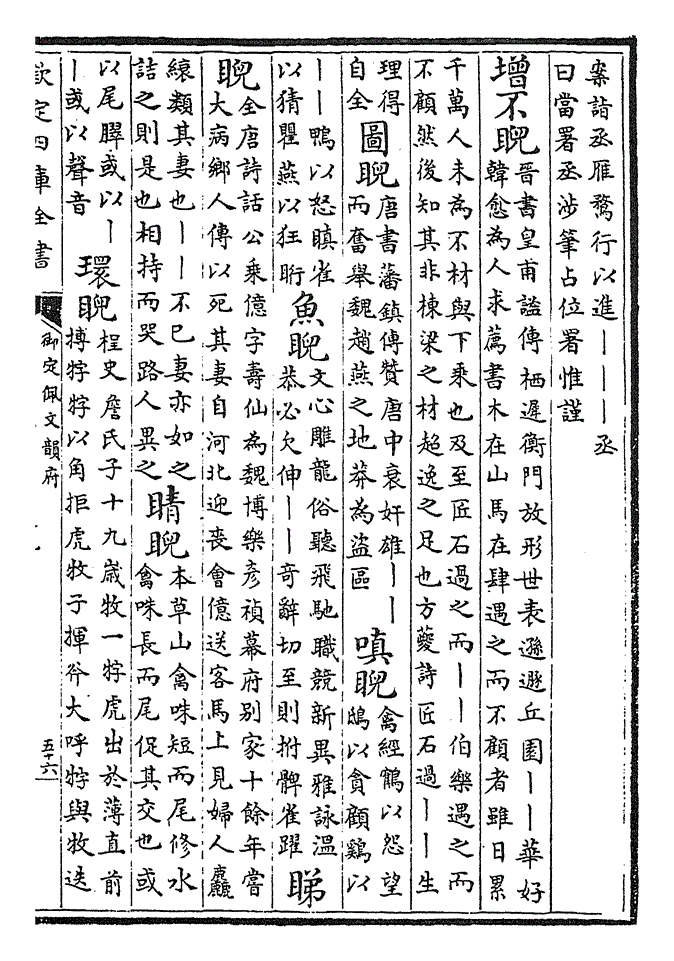 案詣丞雁鶩行以進｜｜｜丞
曰當署丞涉筆占位署惟謹
增不睨
晉書皇甫謐傳栖遲衡門放形世表遜遯丘園｜｜華好
韓愈為人求薦書木在山馬在肆遇之而不顧者雖日累
千萬人未為不材與下乗也及至匠石過之而｜｜伯樂遇之而
不顧然後知其非棟梁之材超逸之足也方夔詩匠石過｜｜生
理得
自全
圖睨
唐書藩鎮傳贊唐中衰奸雄｜｜
而奮舉魏趙燕之地莽為盜區
嗔睨
禽經鶴以怨望
鴟以貪顧鷄以
｜｜鴨以怒瞋雀
以猜瞿燕以狂盻
魚睨
文心雕龍俗聽飛馳職競新異雅詠溫
恭必欠伸｜｜奇辭切至則拊髀雀躍
睇
睨
全唐詩話公乘億字壽仙為魏博樂彦禎幕府别家十餘年嘗
大病鄉人傳以死其妻自河北迎喪會億送客馬上見婦人麤
縗類其妻也｜｜不已妻亦如之
詰之則是也相持而哭路人異之
睛睨
本草山禽咮短而尾修水
禽咮長而尾促其交也或
以尾臎或以｜
｜或以聲音
環睨
桯史詹氏子十九歲牧一牸虎出於薄直前
搏牸牸以角拒虎牧子揮斧大呼牸與牧迭
欽定四庫全書
御定佩文韻府
五十六